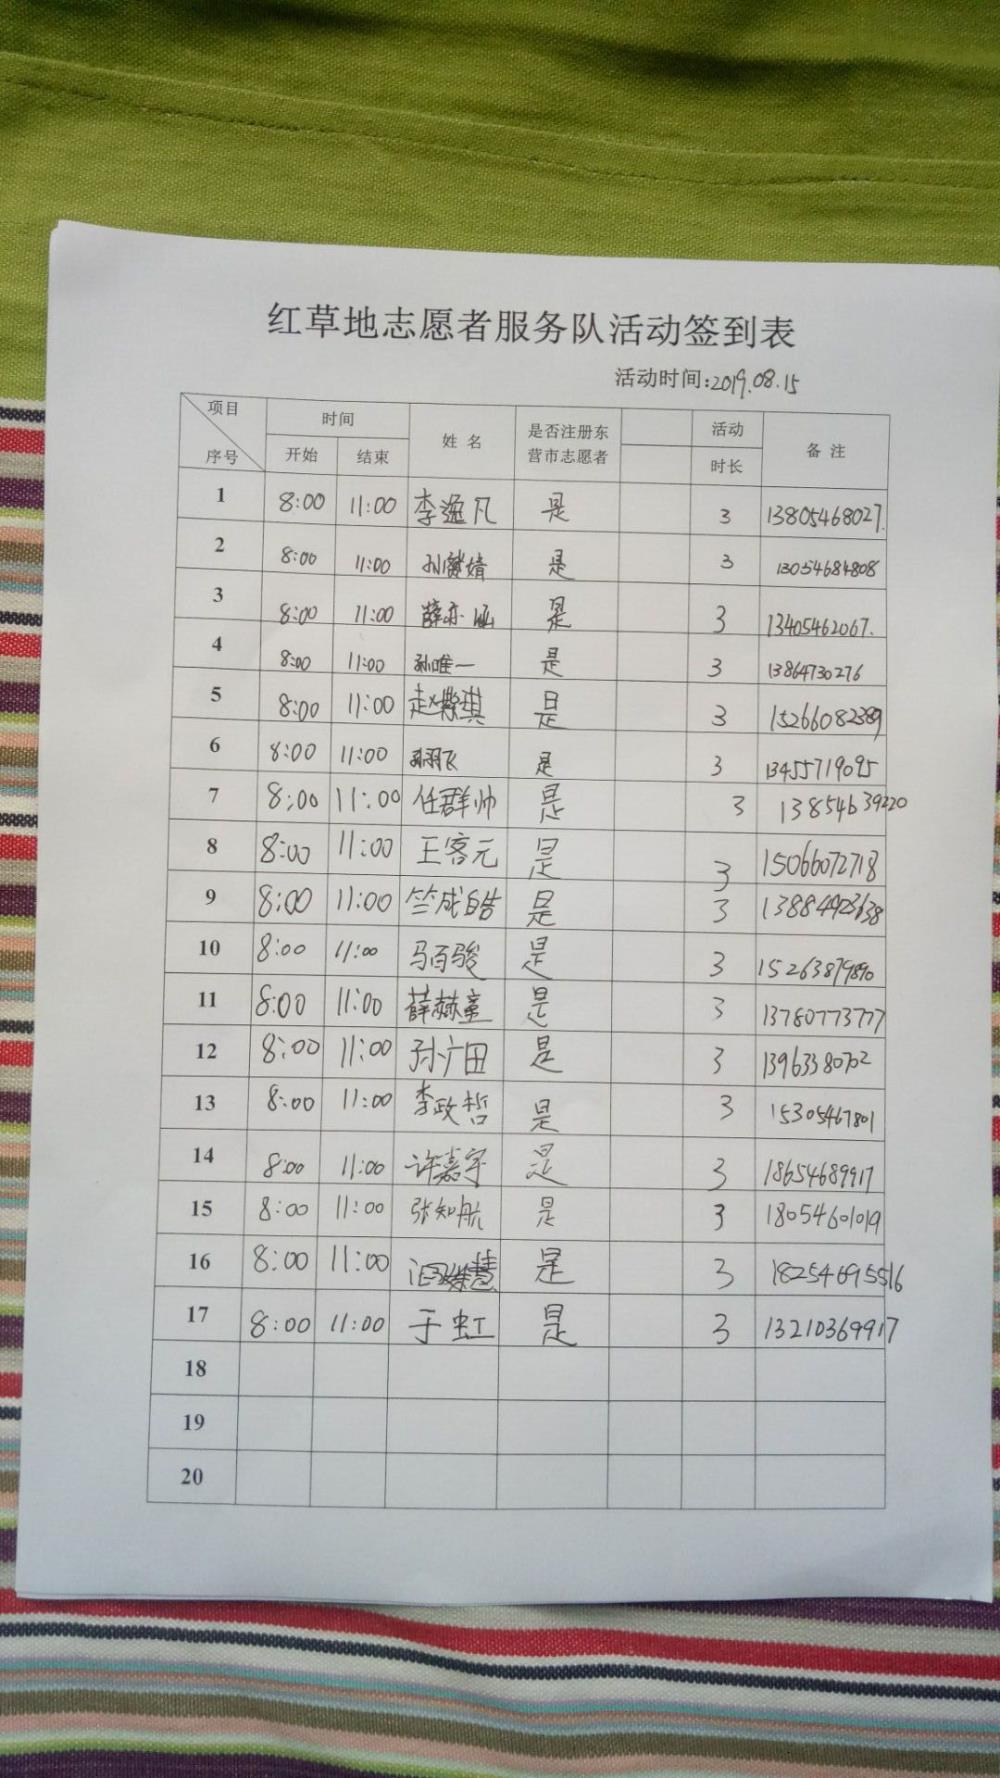 红草地志愿者服务队活动签到表
活动时间:2019.08.15
项目 序号 时间 开始 结束 姓名 是否注册东营市志愿者 活动时长 备注
1 8:00 11:00 李逸凡 是 3 13805468027.
2 8:00 11:00 孙 婧 是 3 13054684808
3 8:00 11:00 薛亦涵 是 3 13405462067.
4 8:00 11:00 孙唯一 是 3 13864730276
5 8:00 11:00 赵 琪 是 3 15266082389
6 8:00 11:00 孙羽飞 是 3 13455719095
7 8:00 11:00 任群帅 是 3 13854639220
8 8:00 11:00 王客元 是 3 15066072718
9 8:00 11:00 竺成皓 是 3 13884923638
10 8:00 11:00 马百骏 是 3 15263879890
11 8:00 11:00 薛赫童 是 3 13780773777
12 8:00 11:00 孙广田 是 3 13963380702
13 8:00 11:00 李政哲 是 3 15305467801
14 8:00 11:00 许嘉宇 是 3 18654689917
15 8:00 11:00 张知航 是 3 18054601019
16 8:00 11:00 慧 是 3 18254695516
17 8:00 11:00 于虹 是 3 13210369917
18
19
20